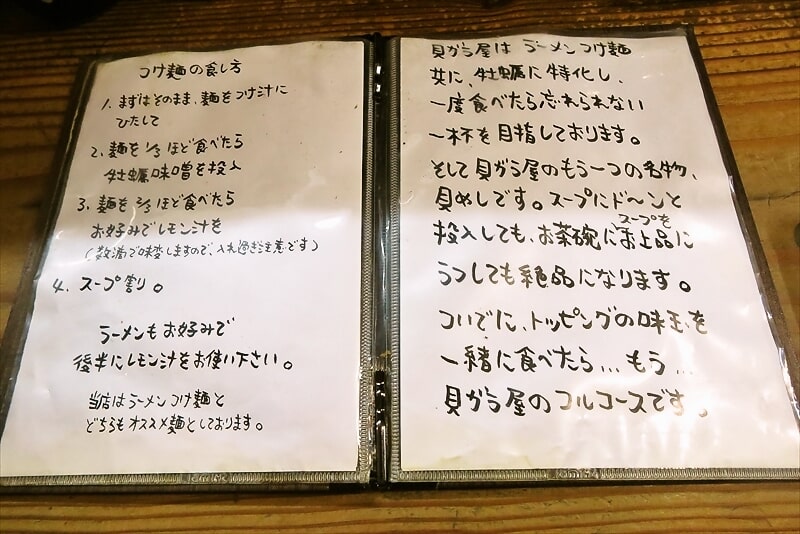 つけ麺の食し方
1. まずはそのまま、麺をつけ汁に
ひたして
2、麺を1/3ほど食べたら
牡蠣味噌を投入
3、麺を2/3ほど食べたら
お好みでレモン汁を
(数滴で味変しますので、入れ過ぎ注意です)
4、スープ割り。
ラーメンもお好みで
後半にレモン汁をお使い下さい。
当店はラーメンつけ麺と
どちらもオススメ麺としております。
貝がら屋は ラーメンつけ麺
共に、牡蠣に特化し、
一度食べたら忘れられない
一杯を目指しております。
そして貝がら屋のもう一つの名物、
貝めしです。スープにド〜ンと
投入しても、お茶碗にスープをお上品に
うつしても絶品になります。
ついでに、トッピングの味玉を
一緒に食べたら...もう...
貝がら屋のフルコースです。